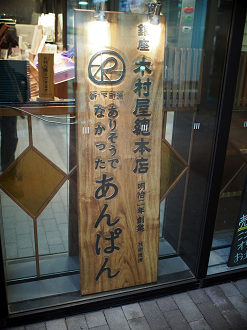 銀座 木村屋總本店
明治二年創業
ありそうで
なかった
あんぱん